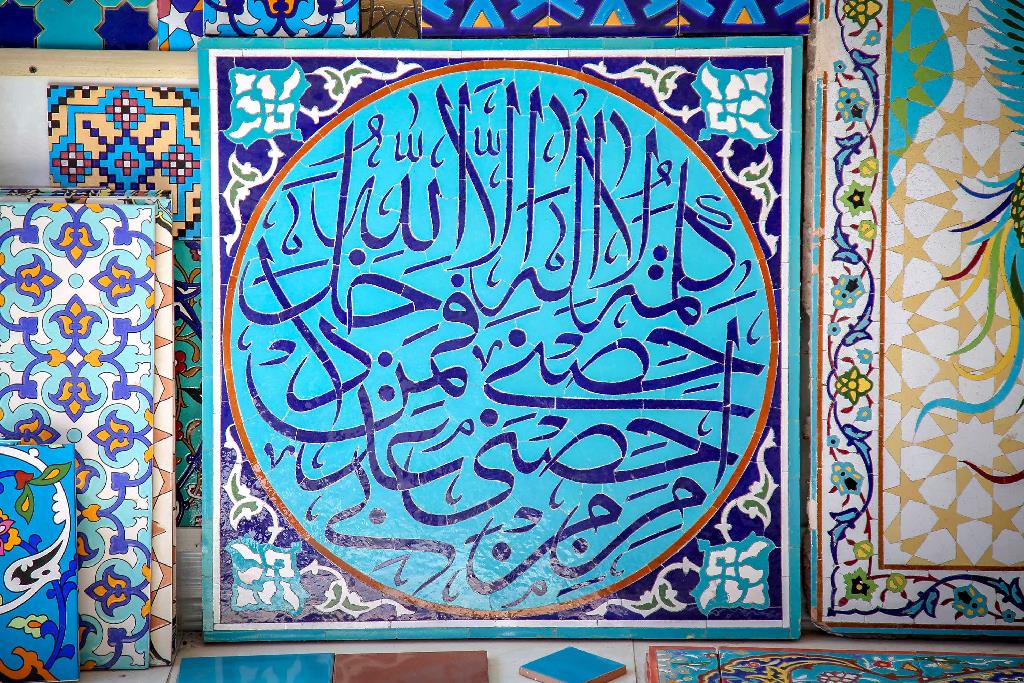 كلمة لا اله الا الله
حصني فمن دخل
حصني امن من عذابي